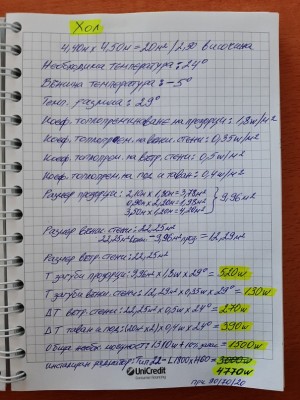 Хол
4,40м x 4,50м = 20м² / 2,50 височина
Необходима температура: 24°
Външна температура: -5°
Темп. разлика: 29°
Коеф. топлопреминаване на прозорци: 1,8w/м²
Коеф. топлопрем. на външ. стени: 0,35w/м²
Коеф. топлопрем. на вътр. стени: 0,5w/м²
Коеф. топлопрем. на под и таван: 0,4w/м²
Размер прозорци: 2,10м x 1,80м = 3,78м²
0,90м x 2,20м = 1,98м²
3,50м x 1,20м = 4,20м²
9,96м²
Размер външ. стени: 22,25м²
22,25м² - 9,96м² проз. = 12,29м²
Размер вътр. стени: 22,25м²
Т загуби прозорци: 9,96м² x 1,8w x 29° = 520w
Т загуби външ. стени: 12,29м² x 0,35w x 29° = 130w
ΔТ вътр. стени: 22,25м² x 0,5w x 24° = 270w
ΔТ таван и под: (20м² x 2) x 0,4w x 24° = 390w
Обща необх. мощност: 1310w + 10% = 1500w
инсталиран радиатор: Тип 22 - L1800 x H60 =
4770w
UniCredit
при 90/70/20